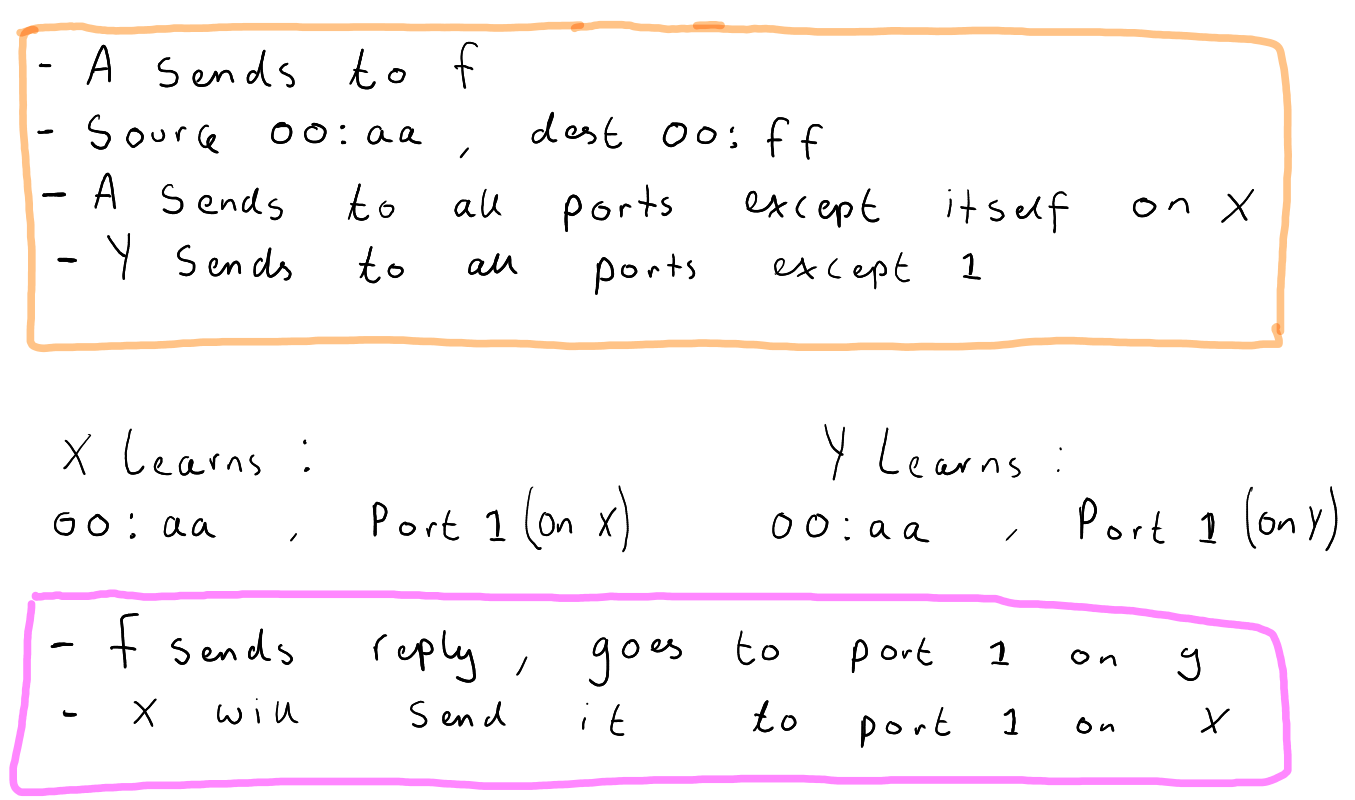 - A sends to f
- Source 00:aa , dest 00:ff
- A sends to all ports except itself on X
- Y sends to all ports except 1
X Learns :
00:aa , Port 1 (on X)
Y Learns :
00:aa , Port 1 (on Y)
- f sends reply, goes to port 1 on y
- X will send it to port 1 on X